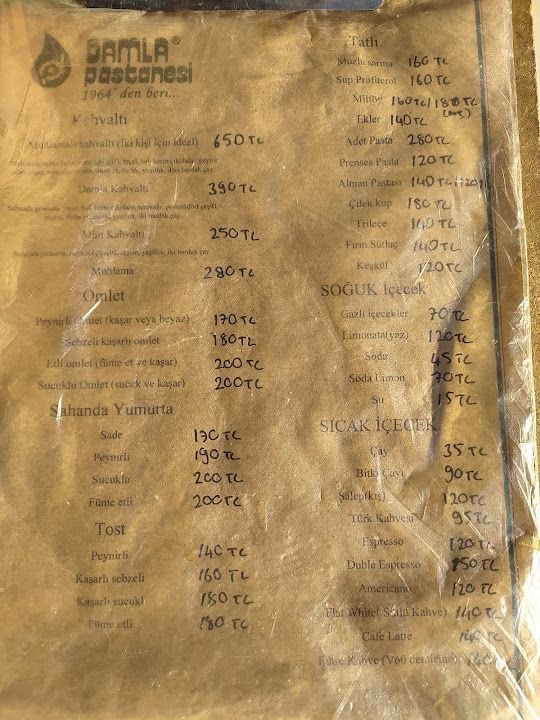 DAMLA®
pastanesi
1964' den beri...
Kahvaltı
kahvaltı (iki kişi için ideal) 650 TL
Damla Kahvaltı 390 TL
Mini Kahvaltı 250 TL
Muhlama 280 TL
Omlet
Peynirli omlet (kaşar veya beyaz) 170 TL
Sebzeli kaşarlı omlet 180 TL
Etli omlet (füme et ve kaşar) 200 TL
Sucuklu Omlet (sucuk ve kaşar) 200 TL
Sahanda Yumurta
Sade 170 TL
Peynirli 190 TL
Sucuklu 200 TL
Füme etli 200 TL
Tost
Peynirli 140 TL
Kaşarlı sebzeli 160 TL
Kaşarlı sucukl 180 TL
Füme etli 180 TL
Tatlı
Muzlu sarma 160 TL
Sup Profiterol 160 TL
Milföy 160 TL/180 TL
Ekler 140 TL
Adet Pasta 280 TL
Prenses Pasta 120 TL
Alman Pastası 140 TL/120 TL
Çilek kup 180 TL
Trileçe 140 TL
Fırın Sütlaç 140 TL
Keşkül 120 TL
SOĞUK İçecek
Gazlı içecekler 70 TL
Limonata(yaz) 120 TL
Soda 45 TL
Soda Limon 70 TL
Su 15 TL
SICAK İÇECEK
Çay 35 TL
Bitki Çayı 90 TL
Salep(kış) 120 TL
Türk Kahvesi 95 TL
Espresso 120 TL
Duble Espresso 150 TL
Americano 120 TL
Flat White( Sütlü Kahve) 140 TL
Cafe Latte 140 TL
Filtre Kahve (V60 demleme) 140 TL